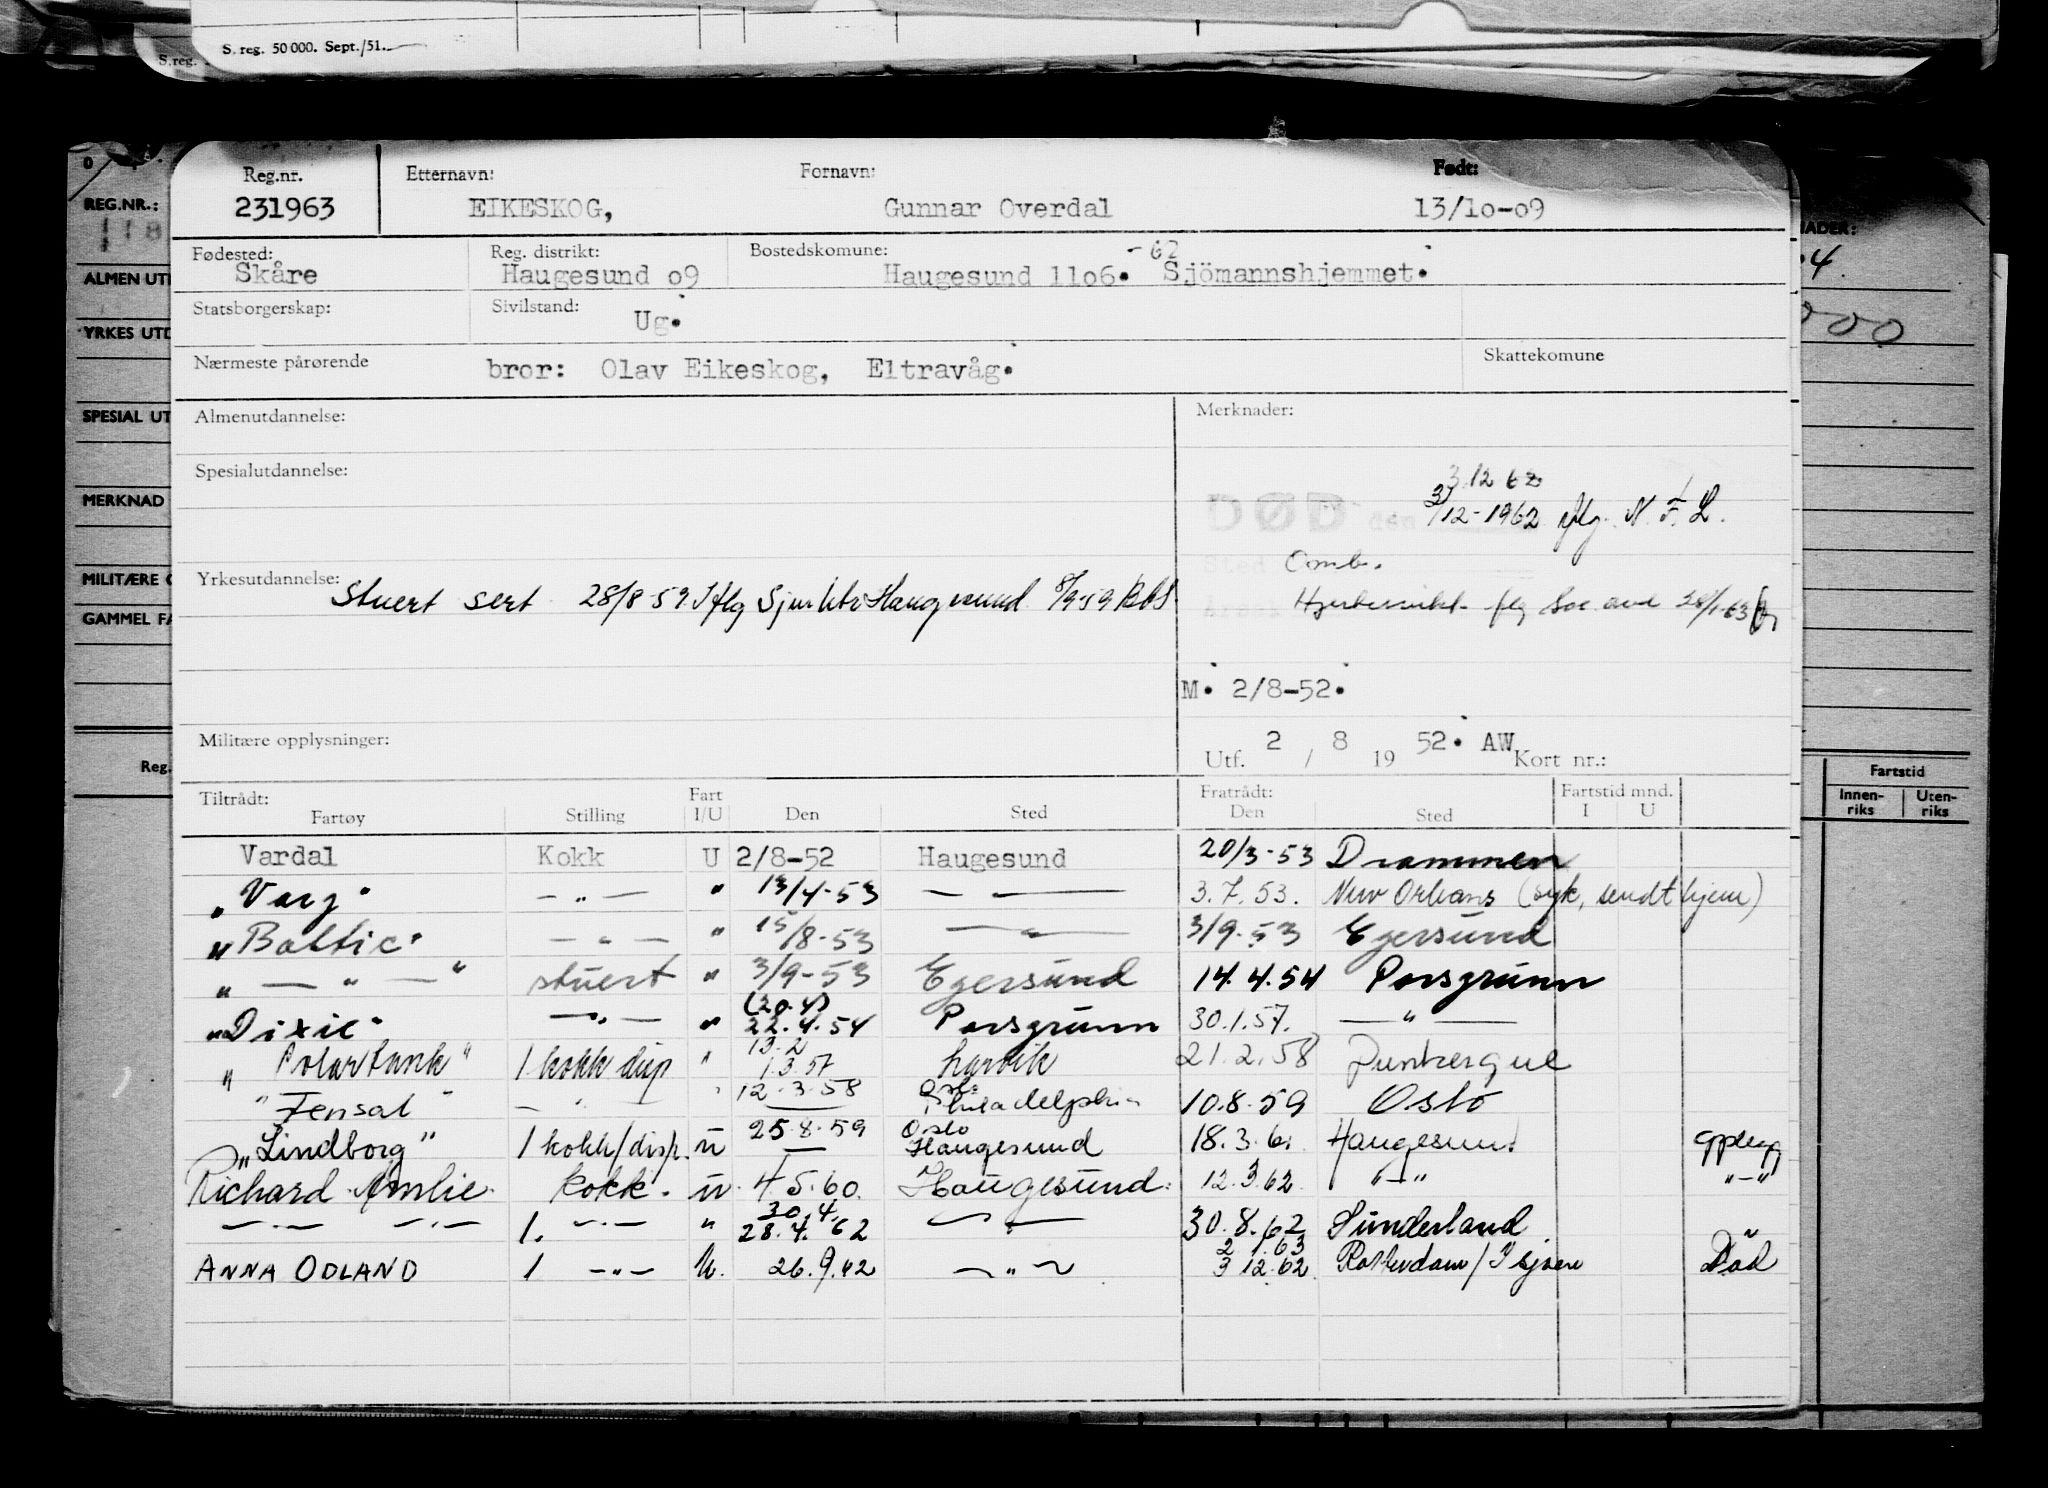 S. reg. 50 000. Sept./51.
S.reg.
Reg.nr. Etternavn: Fornavn: Født:
231963 EIKESKOG, Gunnar Overdal 13/1o-o9
Fødested: Reg. distrikt: Bostedskomune: -62
Skåre Haugesund o9 Haugesund 11o6. Sjömannshjemmet.
Statsborgerskap: Sivilstand: Ug.
Nærmeste pårørende bror: Olav Eikeskog, Eltravåg. Skattekomune
Almenutdannelse: Merknader:
Spesialutdannelse: 3.12 62
DØD den 3/12-1962 iflg. N. F. L.
Sted Omb.
Yrkesutdannelse: Stuert sert 28/8-59 Iflg Sjm ktr Haugesund 8/9-59
Hjertesvikt flg Soc avd 28/1-63
M. 2/8-52.
Militære opplysninger: Utf. 2 / 8 19 52. AW Kort nr.:
Tiltrådt: Fart Fratrådt: Fartstid mnd.
Fartøy Stilling I/U Den Sted Den Sted I U
Vardal Kokk U 2/8-52 Haugesund 20/3-53 Drammen
"Varg" — " — " 13/4-53 — — 3.7.53. New Orleans (syk, sendt hjem)
"Baltic" — " — " 15/8-53 — " — 3/9-53 Egersund
" — " — " stuert " 3/9-53 Egersund 14.4.54 Porsgrunn
(20.4)
"Dixie" — " — " 22.4.54 Porsgrunn 30.1.57. — " —
13.2
"Polartank" 1 kokk disp " 1.3.57 Narvik 21.2.58 Dunkerque
"Fensal" — " — " 12.3.58 Oslo Philadelphia 10.8.59 Oslo
"Lindborg" 1 kokk/disp. u 25.8.59 Oslo Haugesund 18.3.6. Haugesund opplegg
Richard Amlie kokk. u. 4.5.60. Haugesund. 12.3.62 " — " " — "
30.4.
— " — — " — 1. — " — " 28.4.62 — " — 30.8.62 Sunderland
2 1.63
ANNA ODLAND 1 — " — u. 26.9.62 — " — 3 12.62 Rotterdam / I sjøen Död
0
REG.NR.:
118
ALMEN UT
YRKES UTD
SPESIAL UT
MERKNAD
MILITÆRE
GAMMEL FA
Reg.
NADER:
4.
000
Fartstid
Innen-riks Uten-riks